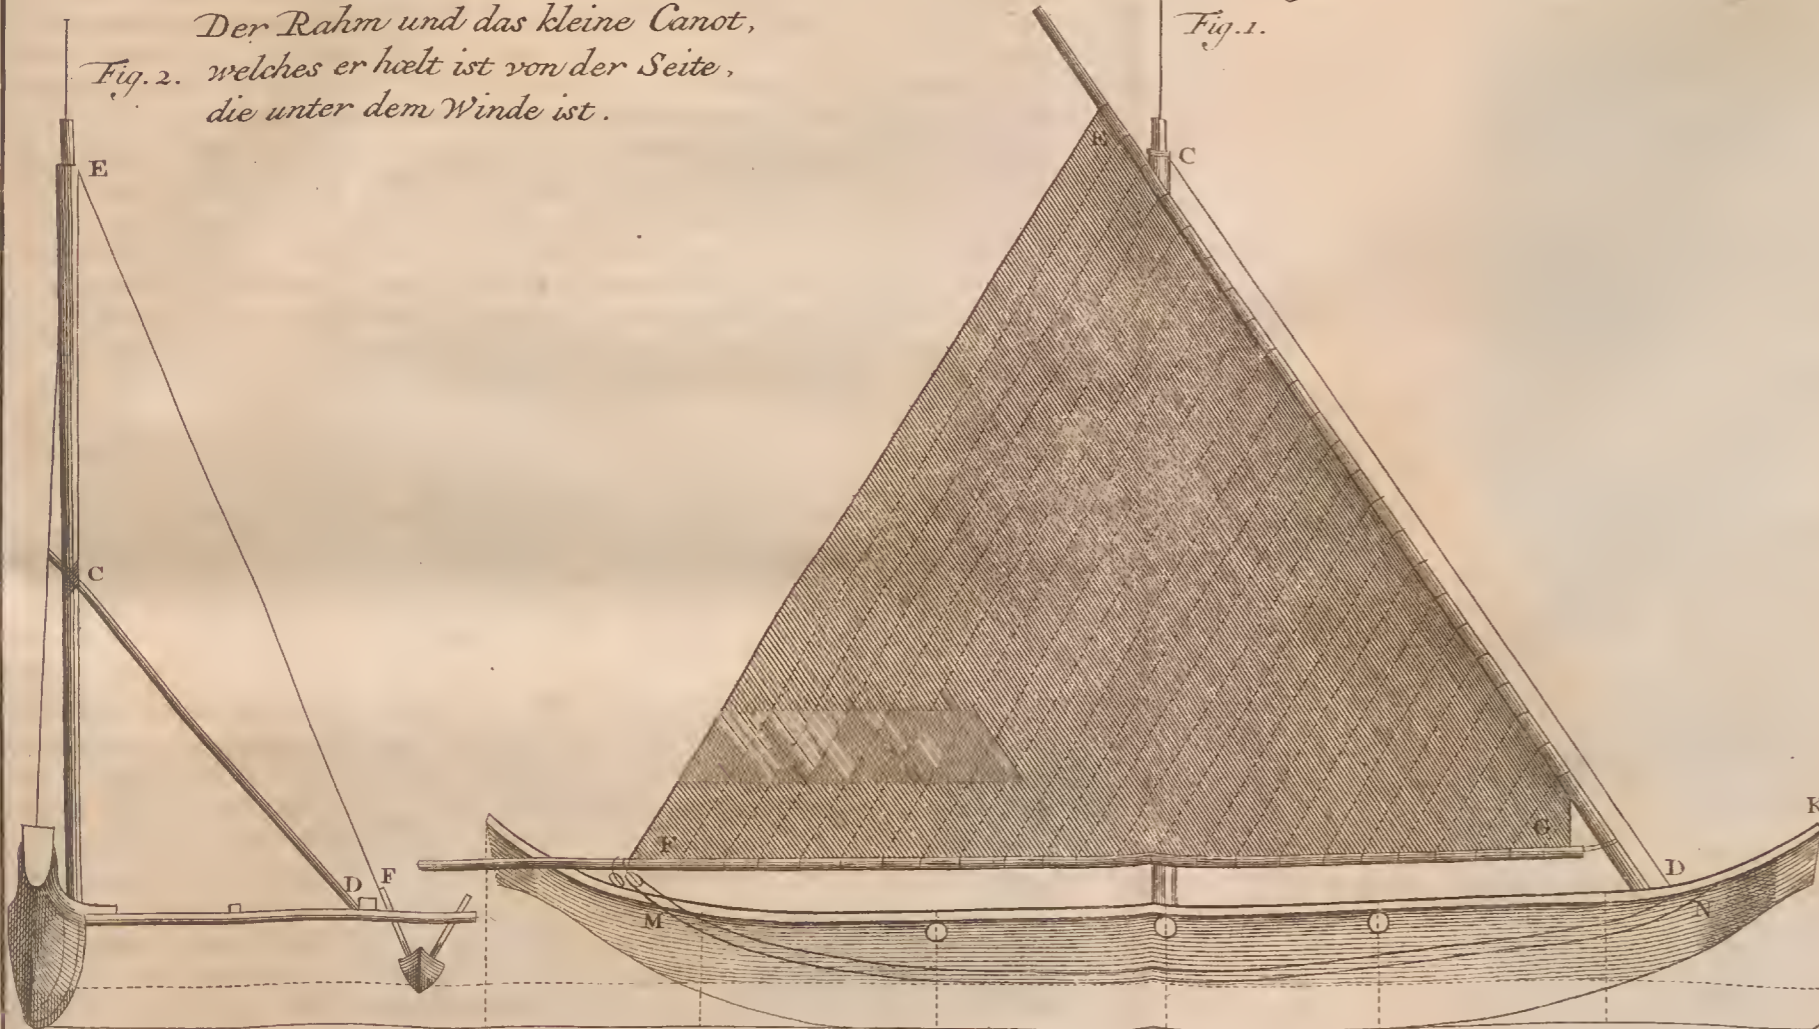 Der Rahm und das kleine Canot,
Fig. 2. welches er hælt ist von der Seite,
die unter dem Winde ist.
Fig. 1.
E
C
D
F
E
C
F
G
D
K
M
N